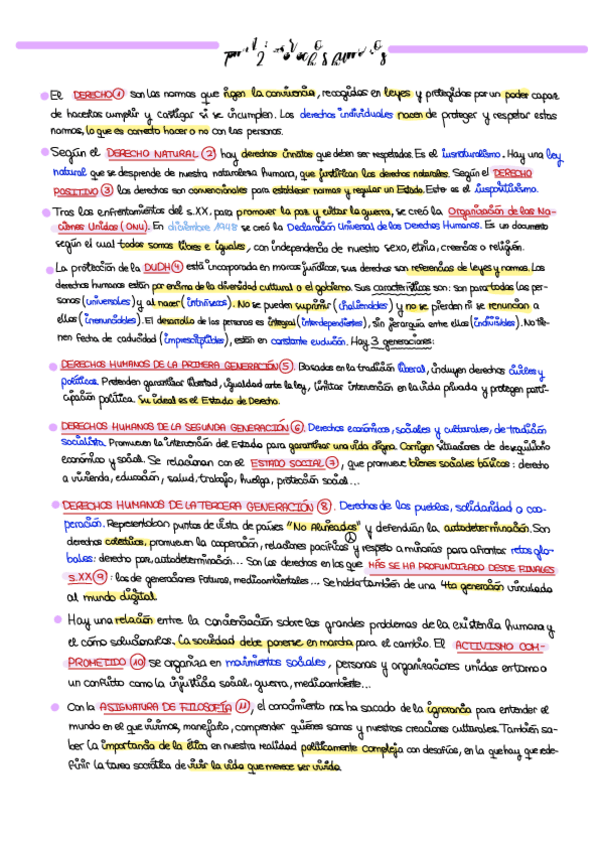 El DERECHO① son las normas que rigen la convivencia, recogidas en leyes y protegidas por un poder capaz
de hacerlas cumplir y castigar si se incumplen. Los derechos individuales nacen de proteger y respetar estas
normas, lo que es correcto hacer o no con las personas.
Según el DERECHO NATURAL ② hay derechos innatos que deben ser respetados. Es el iusnaturalismo. Hay una ley
natural que se desprende de nuestra naturaleza humana, que justifican los derechos naturales. Según el DERECHO
POSITIVO ③ los derechos son convencionales para establecer normas y regular un Estado. Este es el iuspositivismo.
Tras los enfrentamientos del s.XX. para promover la paz y evitar la guerra, se creó la Organización de las Na-
ciones Unidas (ONU). En diciembre 1948 se creó la Declaración Universal de los Derechos Humanos. Es un documento
según el cual todos somos libres e iguales, con independencia de nuestro sexo, etnia, creencias o religión.
La protección de la DUDH④ está incorporada en marcos jurídicos, sus derechos son referencias de leyes y normas. Los
derechos humanos están por encima de la diversidad cultural o el gobierno. Sus características son: son para todas las per-
sonas (universales) y al nacer (intrínsecos). No se pueden suprimir (inalienables) y no se pierden ni se renuncian a
ellos (irrenunciables). El desarrollo de las personas es integral (interdependientes), sin jerarquía entre ellos (indivisibles). No tie-
nen fecha de caducidad (imprescriptibles), están en constante evolución. Hay 3 generaciones:
DERECHOS HUMANOS DE LA PRIMERA GENERACIÓN⑤. Basados en la tradición liberal, incluyen derechos civiles y
políticos. Pretenden garantizar libertad, igualdad ante la ley, limitar intervención en la vida privada y protegen parti-
cipación política. Su ideal es el Estado de Derecho.
DERECHOS HUMANOS DE LA SEGUNDA GENERACIÓN⑥. Derechos económicos, sociales y culturales, de tradición
socialista. Promueven la intervención del Estado para garantizar una vida digna. Corrigen situaciones de desequilibrio
económico y social. Se relacionan con el ESTADO SOCIAL⑦, que promueve bienes sociales básicos: derecho
a vivienda, educación, salud, trabajo, huelga, protección social...
DERECHOS HUMANOS DE LA TERCERA GENERACIÓN ⑧. Derechos de los pueblos, solidaridad o coo-
peración. Representaban puntos de vista de países "No Alineados" y defendían la autodeterminación. Son
derechos colectivos, promueven la cooperación, relaciones pacíficas y respeto a minorías para afrontar retos glo-
bales: derecho paz, autodeterminación... Son los derechos en los que MÁS SE HA PROFUNDIZADO DESDE FINALES
s.XX⑨: los de generaciones futuras, medioambientales... Se habla también de una 4ta generación vinculada
al mundo digital.
Hay una relación entre la concienciación sobre los grandes problemas de la existencia humana y
el cómo solucionarlos. La sociedad debe ponerse en marcha para el cambio. El ACTIVISMO COM-
PROMETIDO ⑩ se organiza en movimientos sociales, personas y organizaciones unidas entorno a
un conflicto como la injusticia social, guerra, medioambiente...
Con la ASIGNATURA DE FILOSOFÍA ⑪, el conocimiento nos ha sacado de la ignorancia para entender el
mundo en el que vivimos, manejarlo, comprender quiénes somos y nuestras creaciones culturales. También sa-
ber la importancia de la ética en nuestra realidad políticamente compleja con desafíos, en la que hay que rede-
finir la tarea socrática de vivir la vida que merece ser vivida.